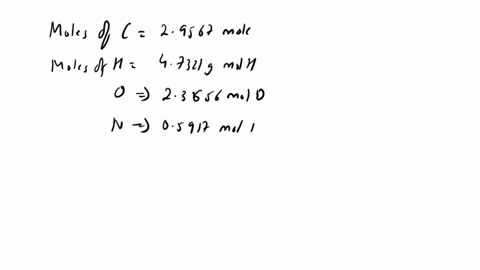 Moles of C = 2.9567 mole
Moles of H = 4.7321g mol H
O => 2.3656 mol O
N => 0.5917 mol